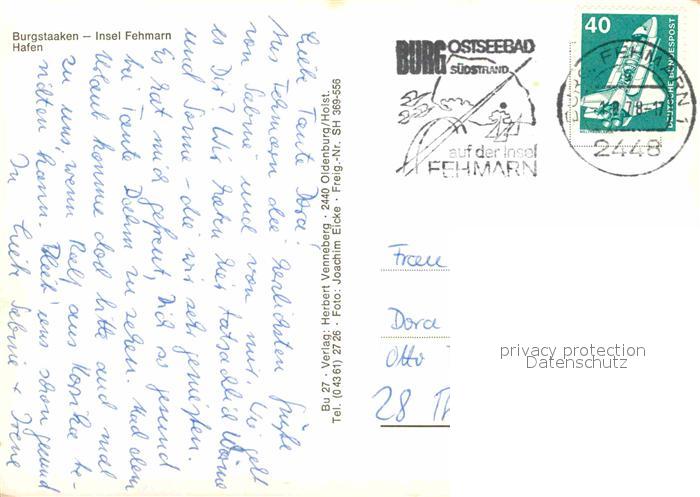 Burgstaaken – Insel Fehmarn
Hafen
Liebe Tante Dora!
Aus Fehmarn die herzlichsten Grüße
von Sabine und von mir. Wie geht
es Dir? Wir haben hier tatsächlich Wärme
und Sonne - die wir sehr genießen.
Es hat mich gefreut, Dich so gesund
bei Tante zu sehen. Nach dem
Urlaub komme doch bitte auch mal
zu uns, wenn Ralf aus Korsika be-
richten kann. Bleib' uns schön gesund
Deine Sabine + Irene
Bu 27 · Verlag: Herbert Venneberg · 2440 Oldenburg/Holst.
Tel. (04361) 2726 · Foto: Joachim Eicke · Freig.-Nr. SH 369-556
BURG OSTSEEBAD
SÜDSTRAND
auf der Insel
FEHMARN
40
DEUTSCHE BUNDESPOST
FEHMARN 1
78-17
2448
Frau
Dora
Otto
28
privacy protection
Datenschutz